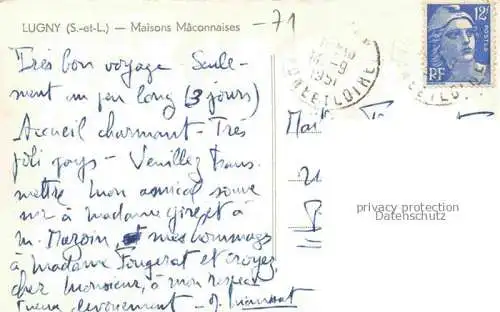 LUGNY (S.-et-L.) — Maisons Mâconnaises
-71
12F
POSTES
RF
1951
SAONE ET LOIRE
Très bon voyage. Seule-
ment un peu long (3 jours)
Accueil charmant - Très
joli pays - Veuillez trans
mettre mon amical souve
nir à madame et à
m. et mes hommages
à madame Fougerat et croyez,
cher Monsieur, à mon respec
tueux dévouement -
privacy protection
Datenschutz